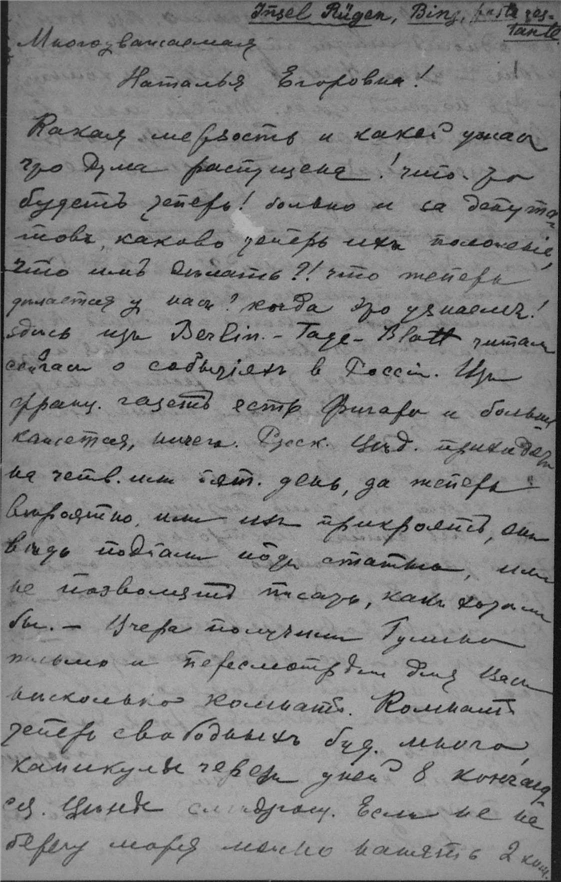 Insel Rügen, Binz, poste res-
tante.
Многоуважаемая
Наталья Егоровна!
Какая мерзость и какой ужас
что Дума распущена! что-то
будетъ теперь! больно и за депута-
товъ, каково теперь ихъ положеніе,
что имъ дѣлать?! что теперь
дѣлается у насъ? когда это узнаемъ!
здѣсь изъ Berlin.-Tage-Blatt читали
сейчасъ о событіяхъ в Россіи. Изъ
франц. газетъ есть Фигаро и больше
кажется, ничего. Русск. приходятъ
на четв. или пят. день, да теперь
вѣроятно, или ихъ прикроятъ, они
вѣдь подъ статью, или
не позволятъ писать, какъ хотѣли
бы. - Вчера получили Гулино
письмо и пересмотрѣли для Васъ
нѣсколько комнатъ. Комнатъ
теперь свободныхъ буд. много,
каникулы через дней 8 кончают-
ся. Если не на
берегу моря можно нанять 2 ком.